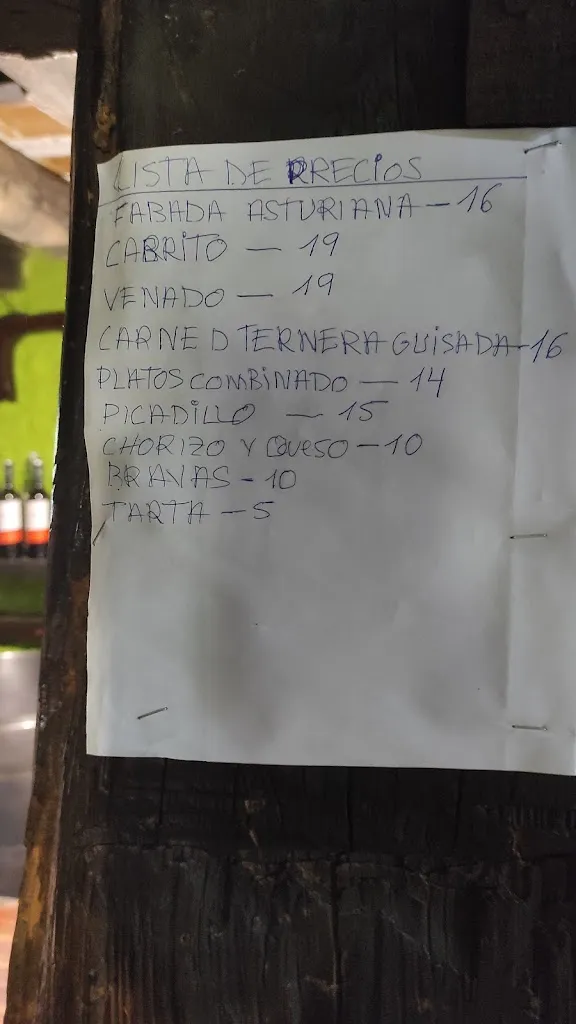 LISTA DE PRECIOS
FABADA ASTURIANA - 16
CABRITO - 19
VENADO - 19
CARNE D TERNERA GUISADA - 16
PLATOS COMBINADO - 14
PICADILLO - 15
CHORIZO Y QUESO - 10
BRAVAS - 10
TARTA - 5